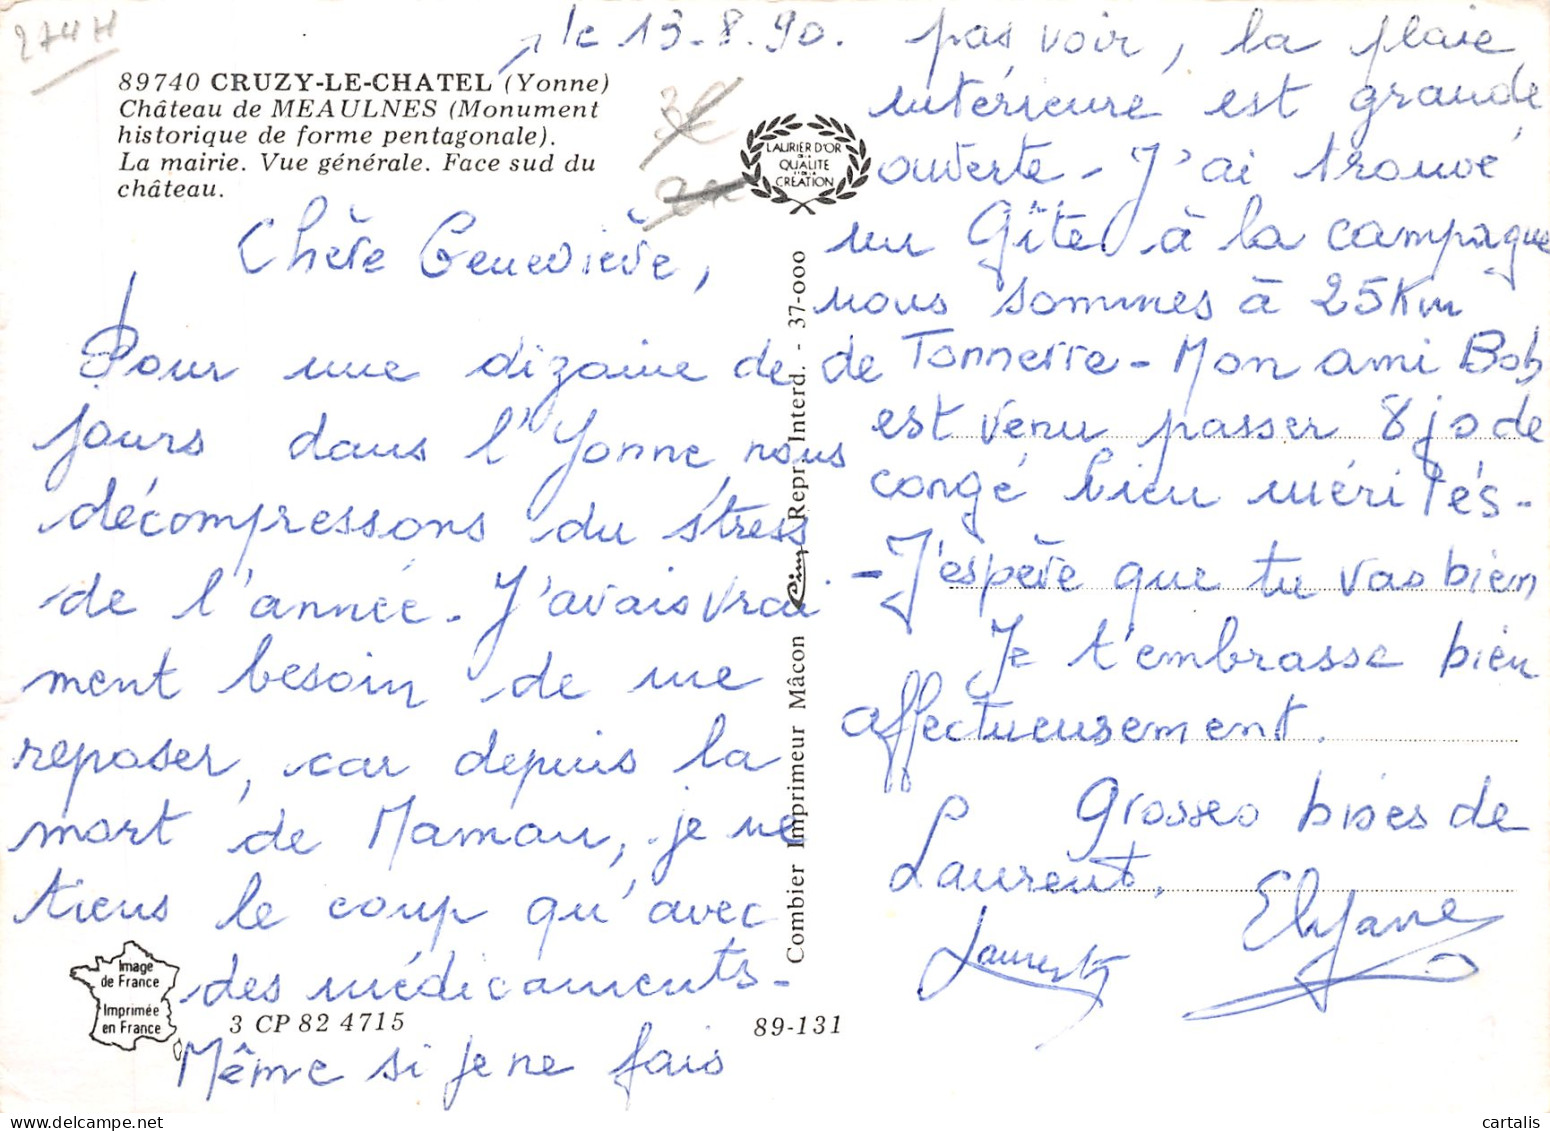 274H
le 13.8.90.
89740 CRUZY-LE-CHATEL (Yonne)
Château de MEAULNES (Monument
historique de forme pentagonale).
La mairie. Vue générale. Face sud du
château.
3€
LAURIER D'OR
DE LA
QUALITE
ET DE LA
CREATION
Chère Geneviève,
Pour une dizaine de
jours dans l'Yonne, nous
décompressons du stress
de l'année. J'avais vrai
ment besoin de me
reposer, car depuis la
mort de Maman, je ne
tiens le coup qu'avec
des médicaments -
Même si je ne fais
Image
de France
Imprimée
en France
3 CP 82 4715
89-131
Combier Imprimeur Mâcon Cim Repr. Interd. - 37-000
pas voir, la plaie
intérieure est grande
ouverte - J'ai trouvé
un Gîte à la campagne
nous sommes à 25Km
de Tonnerre - Mon ami Bob
est venu passer 8 jo de
congé bien mérités -
- J'espère que tu vas bien
Je t'embrasse bien
affectueusement.
Grosses bises de
Laurent.
Laurent
Elyane
cartalis